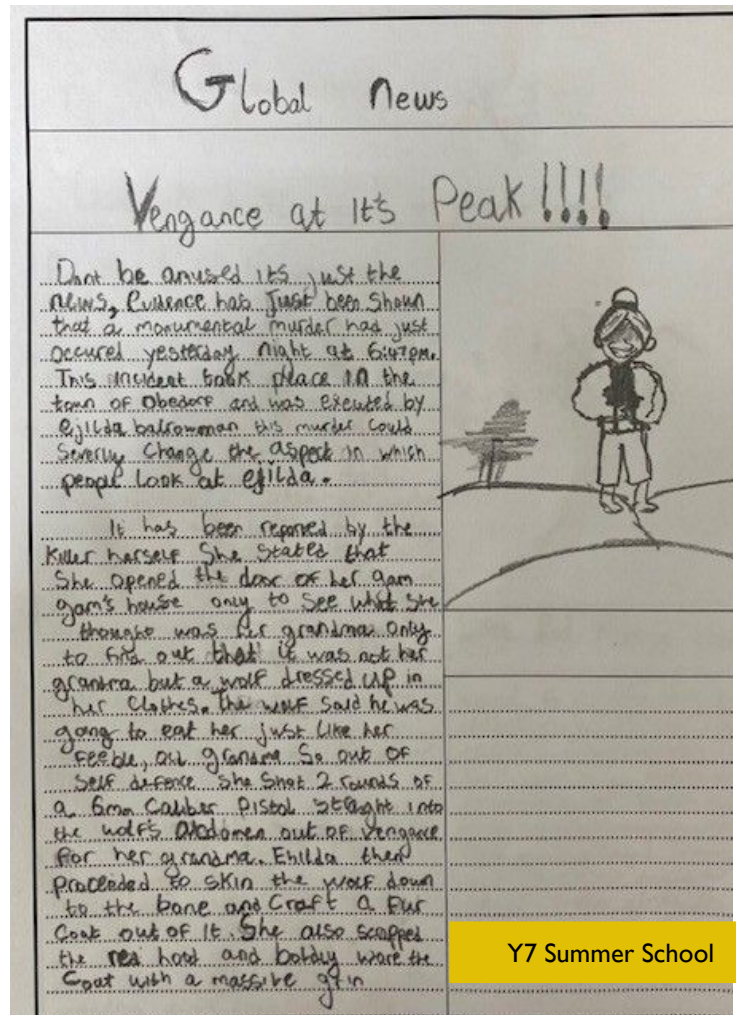 Global News
Vengance at It's Peak !!!!
Dont be amused its just the
news, Evidence has Just been Shown
that a monumental murder had just
occured yesterday night at 6:47pm.
This incident took place in the
town of Obedorf and was executed by
Ejilda balrowman this murder could
Severly Change the aspect in which
people Look at efilda.
It has been reported by the
Killer herself She stated that
She opened the door of her gam
gam's house only to see what She
thought was her grandma only
to find out that it was not her
grandma but a wolf dressed up in
her Clothes. The wolf said he was
going to eat her just like her
Feeble, old grandma So out of
Self defence She Shot 2 rounds of
a 6mm Caliber Pistol straight into
the wolf's Abdomen out of vengance
for her grandma. Ehilda then
Proceeded to skin the wolf down
to the bone and Craft a fur
Coat out of it. She also scrapped
the red hood and boldly wore the
Coat with a massive grin
Y7 Summer School